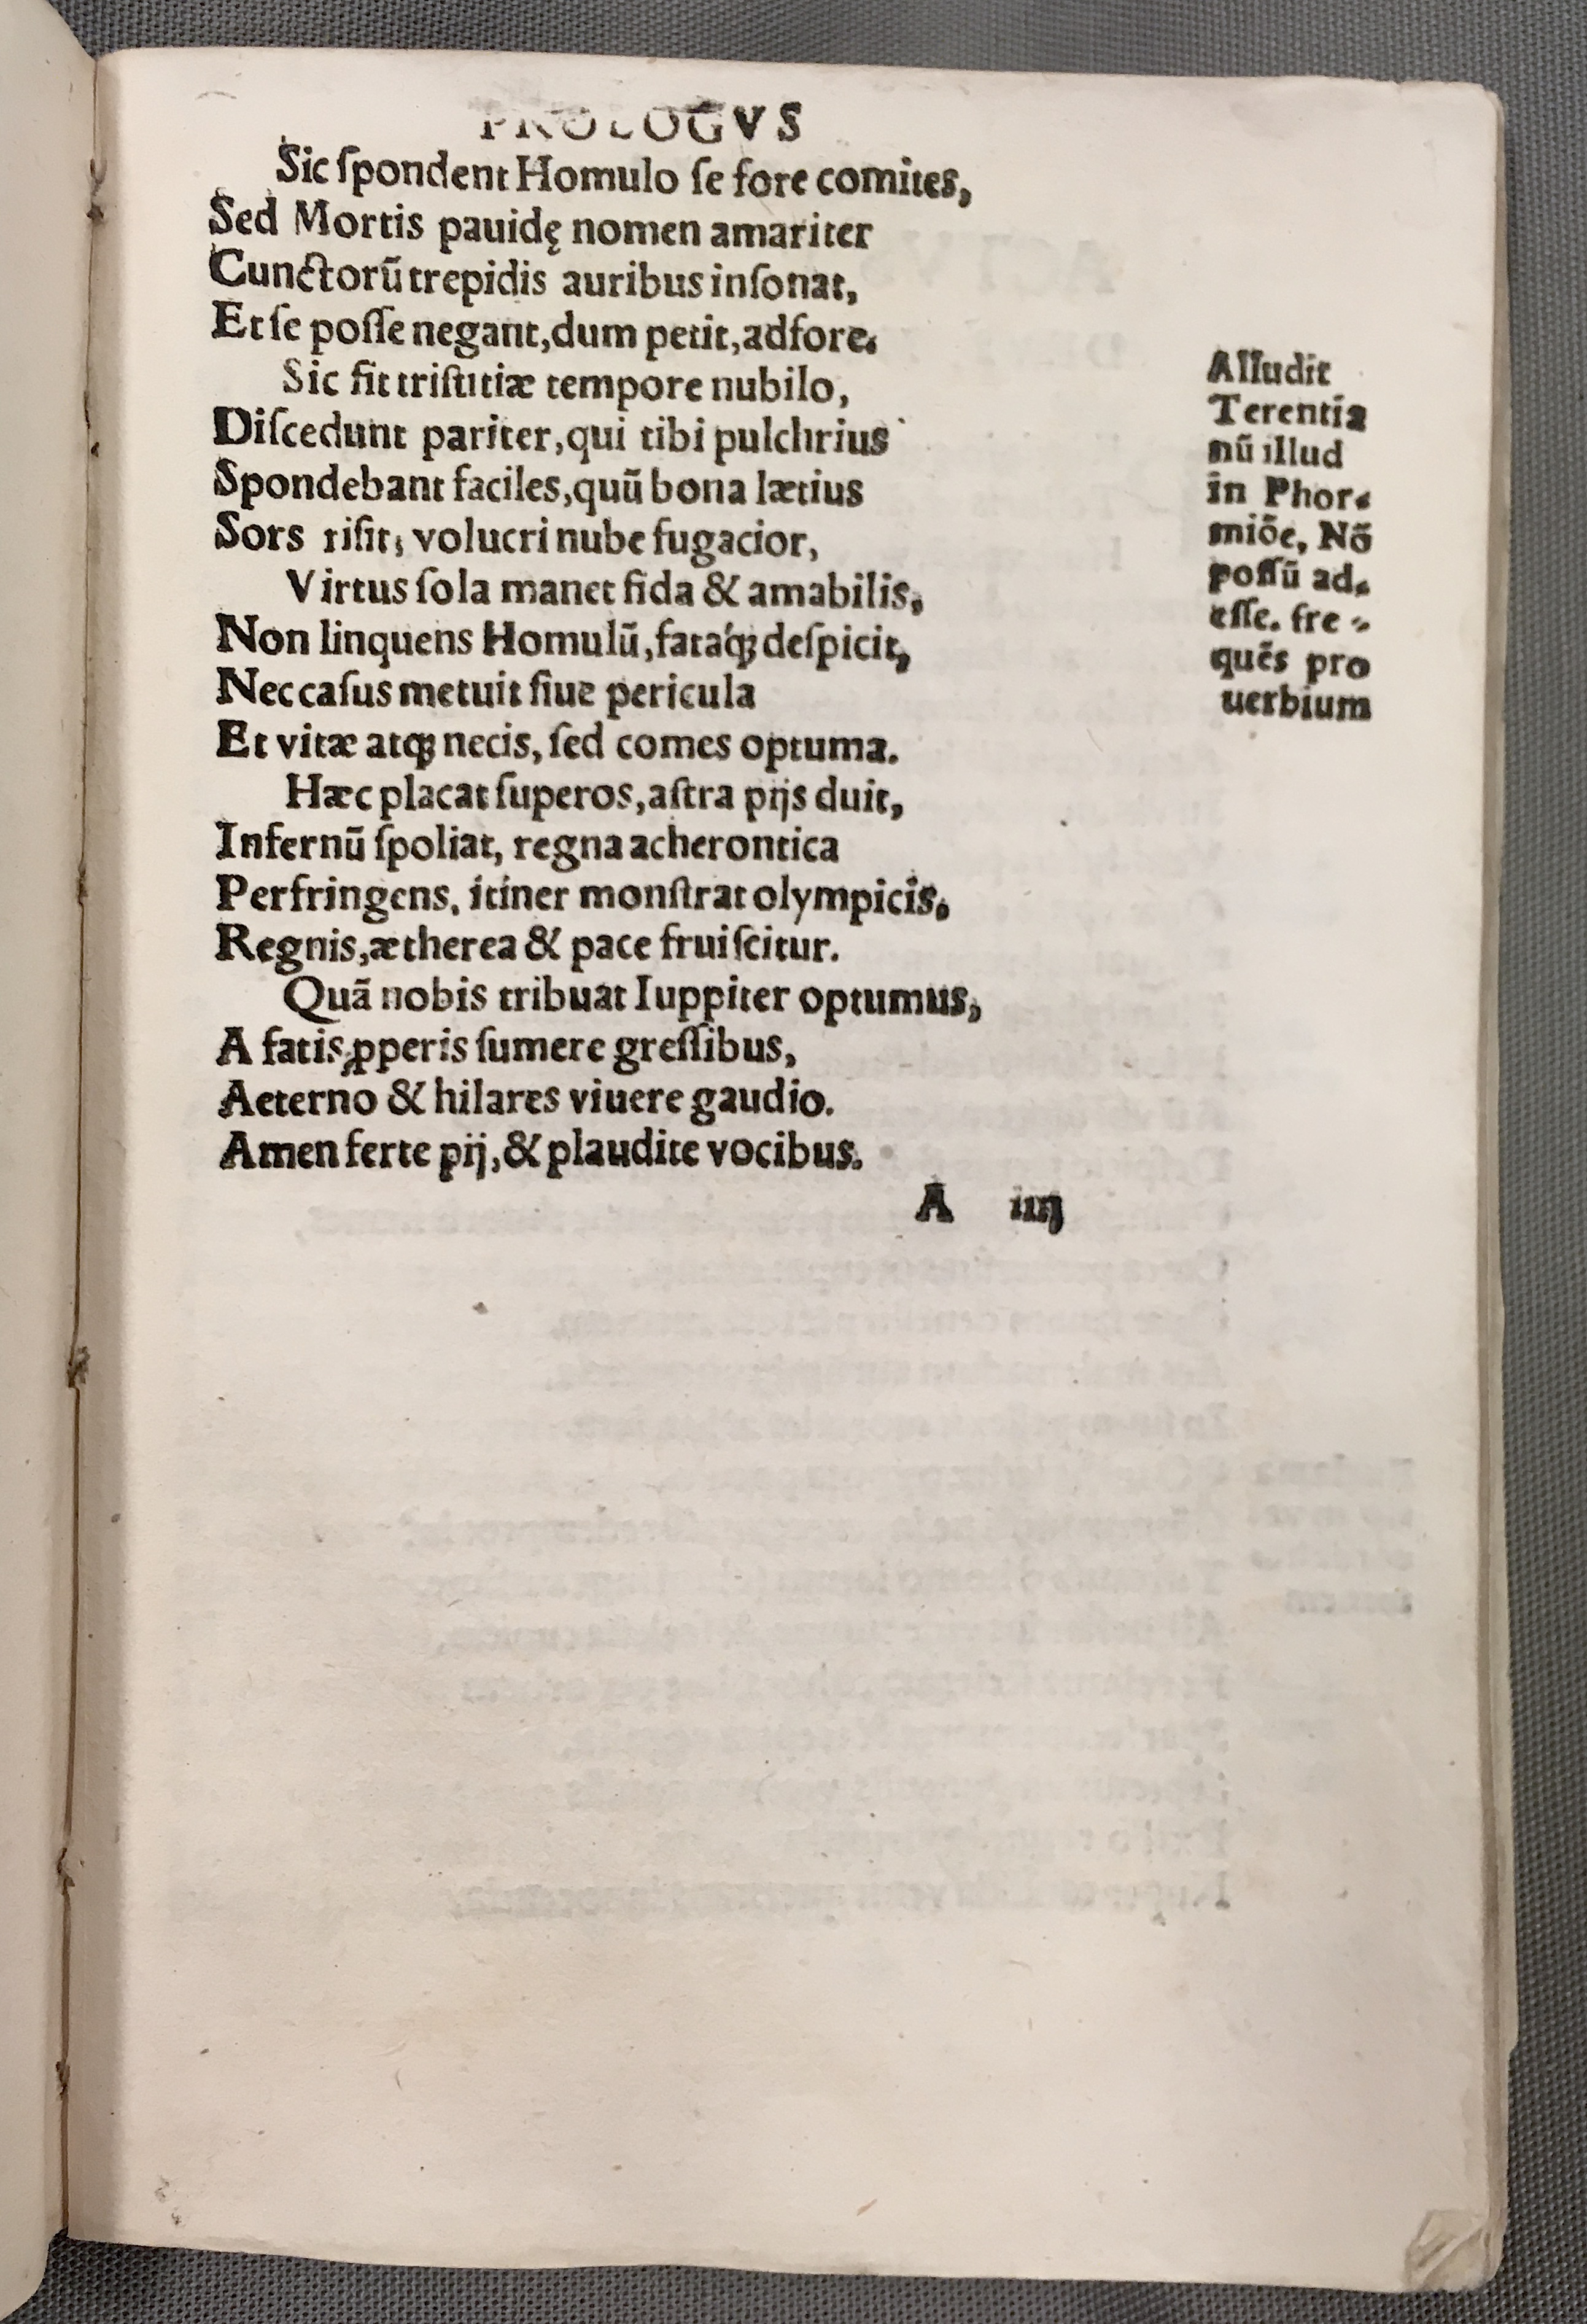 PROLOGVS
Sic ſpondent Homulo ſe fore comites,
Sed Mortis pauidę nomen amariter
Cunctorũ trepidis auribus inſonat,
Et ſe poſſe negant, dum petit, adfore.
Sic fit triſtitiæ tempore nubilo,
Diſcedunt pariter, qui tibi pulchrius
Spondebant faciles, quũ bona lætius
Sors riſit, volucri nube fugacior,
Virtus ſola manet fida & amabilis,
Non linquens Homulũ, fatáqꝫ deſpicit,
Nec caſus metuit ſiue pericula
Et vitæ atqꝫ necis, ſed comes optuma.
Hæc placat ſuperos, aſtra pijs duit,
Infernũ ſpoliat, regna acherontica
Perfringens, itiner monſtrat olympicis,
Regnis, ætherea & pace fruiſcitur.
Quã nobis tribuat Iuppiter optumus,
A fatis ꝓperis ſumere greſſibus,
Aeterno & hilares viuere gaudio.
Amen ferte pij, & plaudite vocibus.
A iiij
Alludit
Terentia
nũ illud
in Phor-
miõe, Nõ
poſſũ ad-
eſſe. fre-
quẽs pro
uerbium